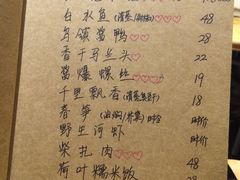 白水鱼(清蒸/红烧)♡♡ 48
乌镇酱鸭♡♡♡ 28
香干马兰头♡♡ 22
酱爆螺丝♡♡♡ 19
千里飘香(清蒸臭豆干) 18
春笋(油焖/荠菜) 时价
野生河虾 时价
柴扎肉♡♡♡♡
荷叶糯米饭 48